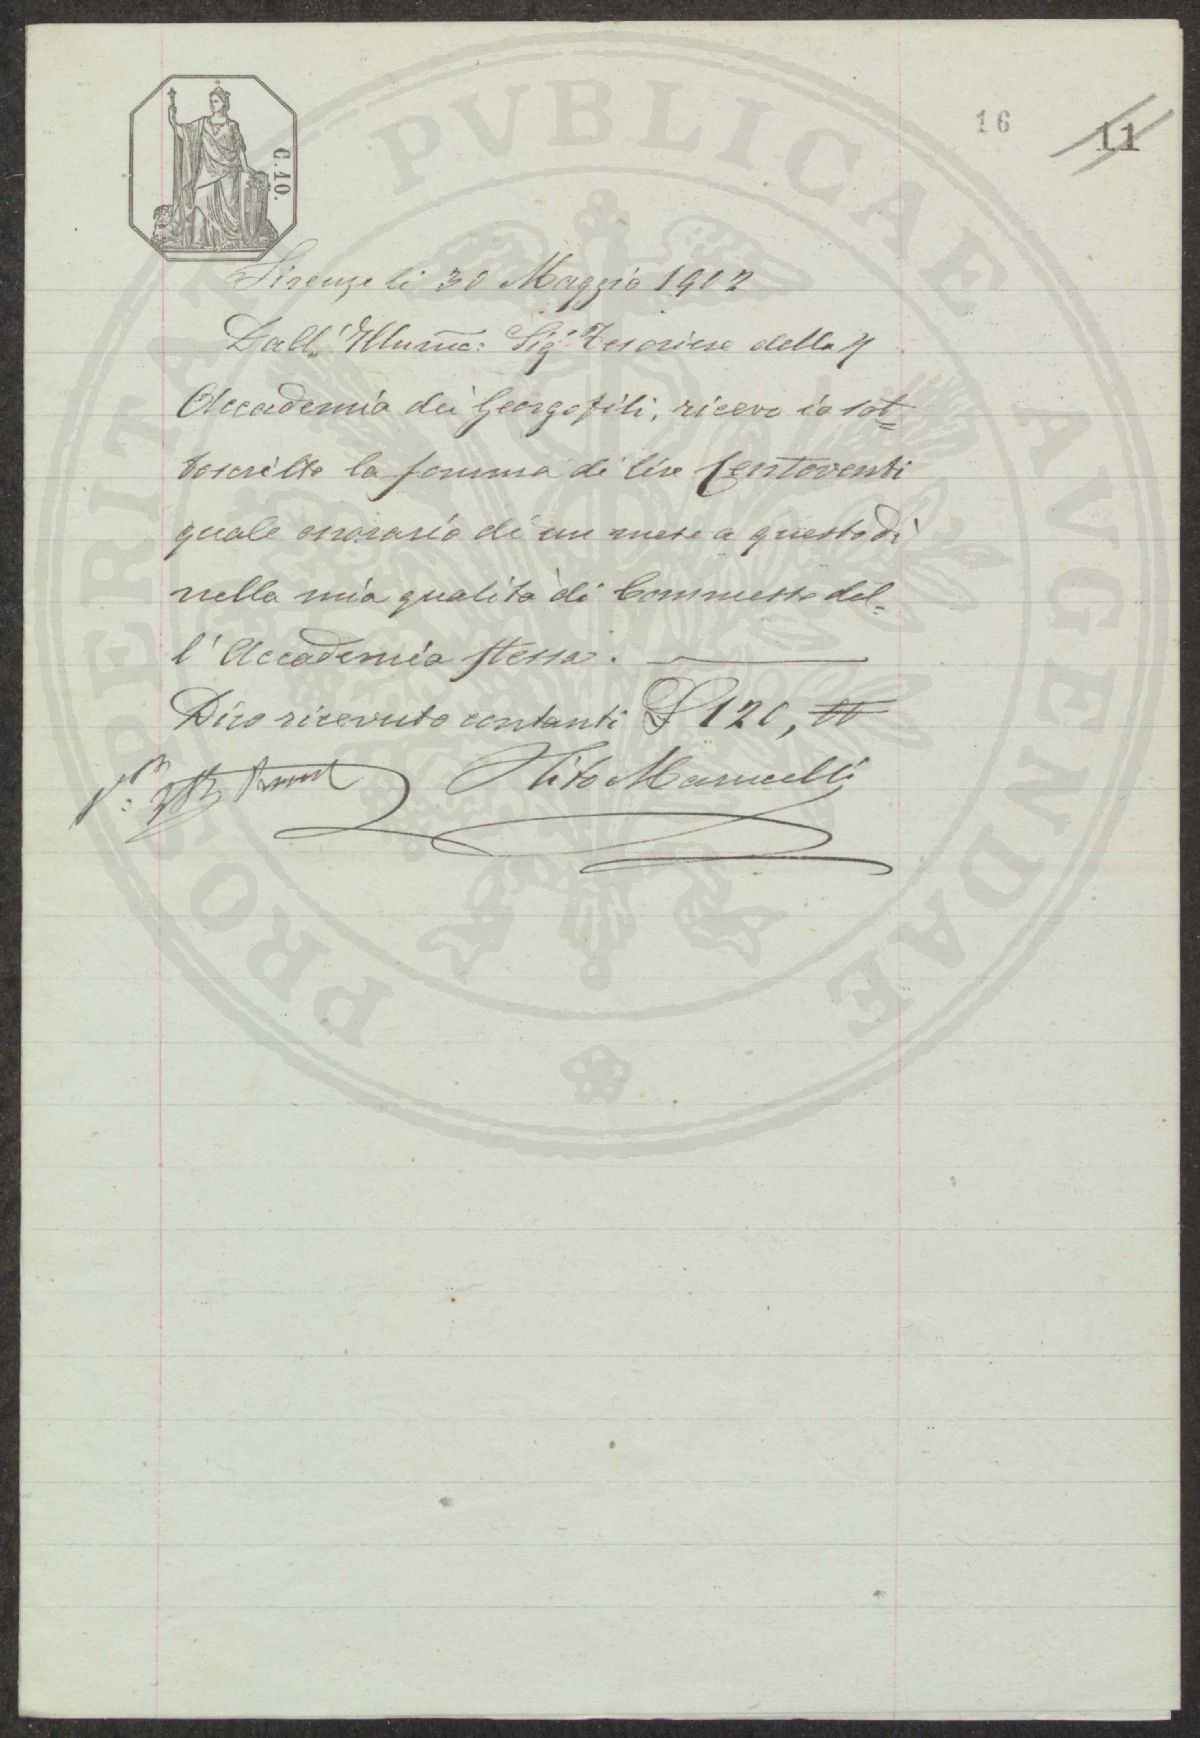 PROSPERITATI PVBLICAE AVGENDAE
C. 10.
16
11
Firenze li 30 Maggio 1902
Dall' Illumo: Sigr Tesoriere della R
Accademia dei Georgofili, ricevo io sot=
toscritto la somma di lire Centoventi
quale onorario di un mese a questo dì
nella mia qualità di Commesso del=
l' Accademia stessa.
Dico ricevuto contanti £ 120,
Tito Marucelli